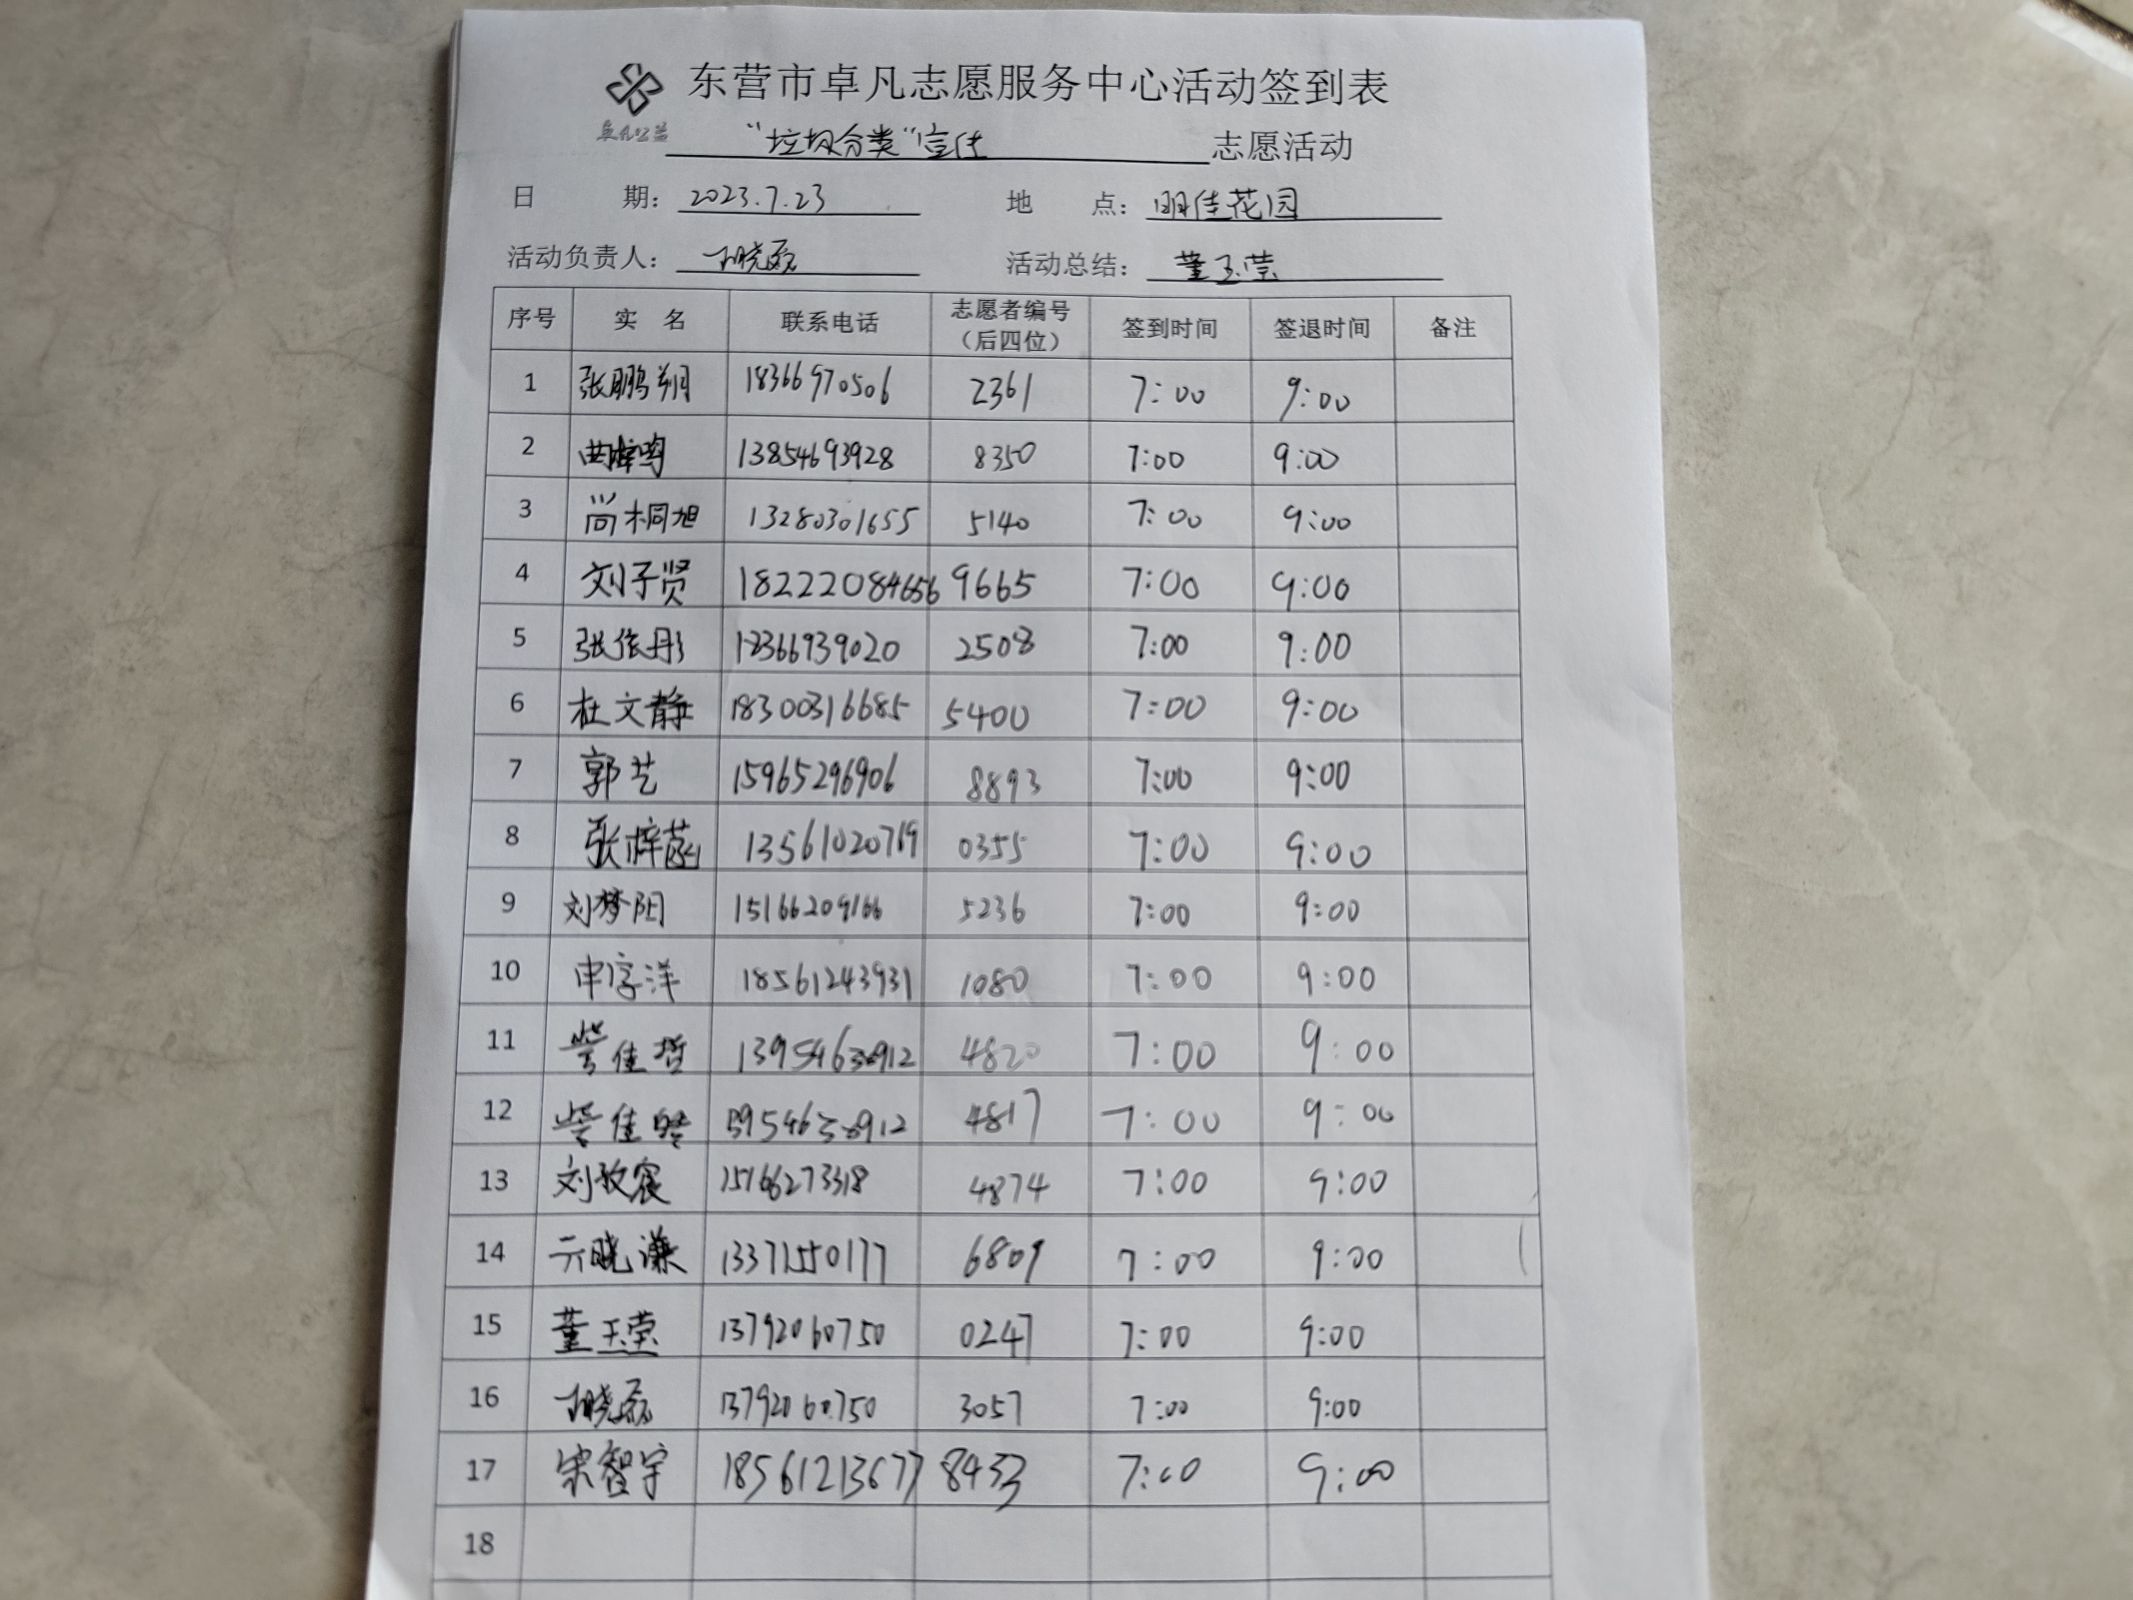 东营市卓凡志愿服务中心活动签到表
卓凡公益
"垃圾分类"宣传 志愿活动
日 期： 2023.7.23 地 点： 明佳花园
活动负责人： 活动总结： 董玉莹
序号 实 名 联系电话 志愿者编号（后四位） 签到时间 签退时间 备注
1 张鹏翔 18366970506 2361 7:00 9:00
2 曲梓鸣 13854693928 8350 7:00 9:00
3 尚桐旭 13280301655 5140 7:00 9:00
4 刘子贤 18222084656 9665 7:00 9:00
5 张依彤 18366939020 2508 7:00 9:00
6 杜文静 18300316685 5400 7:00 9:00
7 郭艺 15965296906 8893 7:00 9:00
8 张梓菡 13561020719 0355 7:00 9:00
9 刘梦阳 15166209166 5236 7:00 9:00
10 申淳洋 18561243931 1080 7:00 9:00
11 佳哲 4820 7:00 9:00
12 佳 4817 7:00 9:00
13 刘 宸 15166273318 4874 7:00 9:00
14 亓晓谦 13371550177 6809 7:00 9:00
15 董玉莹 13792060750 0247 7:00 9:00
16 13792060750 3057 7:00 9:00
17 宋智宇 18561213677 8433 7:00 9:00
18